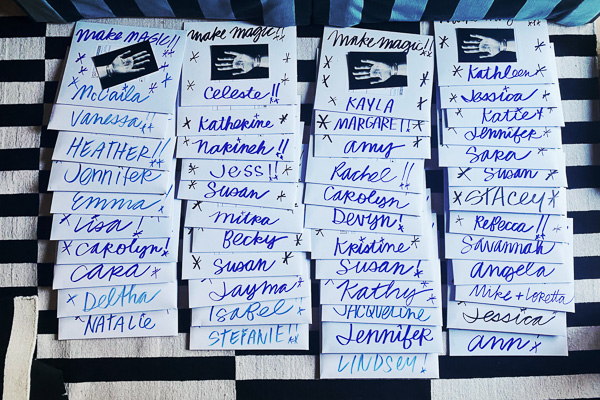 make MAGIC!!
McCaila
Vanessa!!
HEATHER!!
Jennifer
Emma
Lisa!
Carolyn!
CARA
Deltha
NATALIE
make magic!!
Celeste!!
Katherine
Narineh!!
Jess!!
Susan
mitra
Becky
Susan
Jayma
Isabel
STEFANIE!!
make magic!!
KAYLA
MARGARET!!
amy
Rachel!!
Carolyn
Devyn!
Kristine
Susan!
Kathy
JACQUELINE
Jennifer
LINDSEY!
make magic!!
Kathleen
Jessica
Katie
Jennifer
Sara
Susan
STACEY
ReBecca!!
SAVANNAH
angela
Mike + Loretta
Jessica
ann